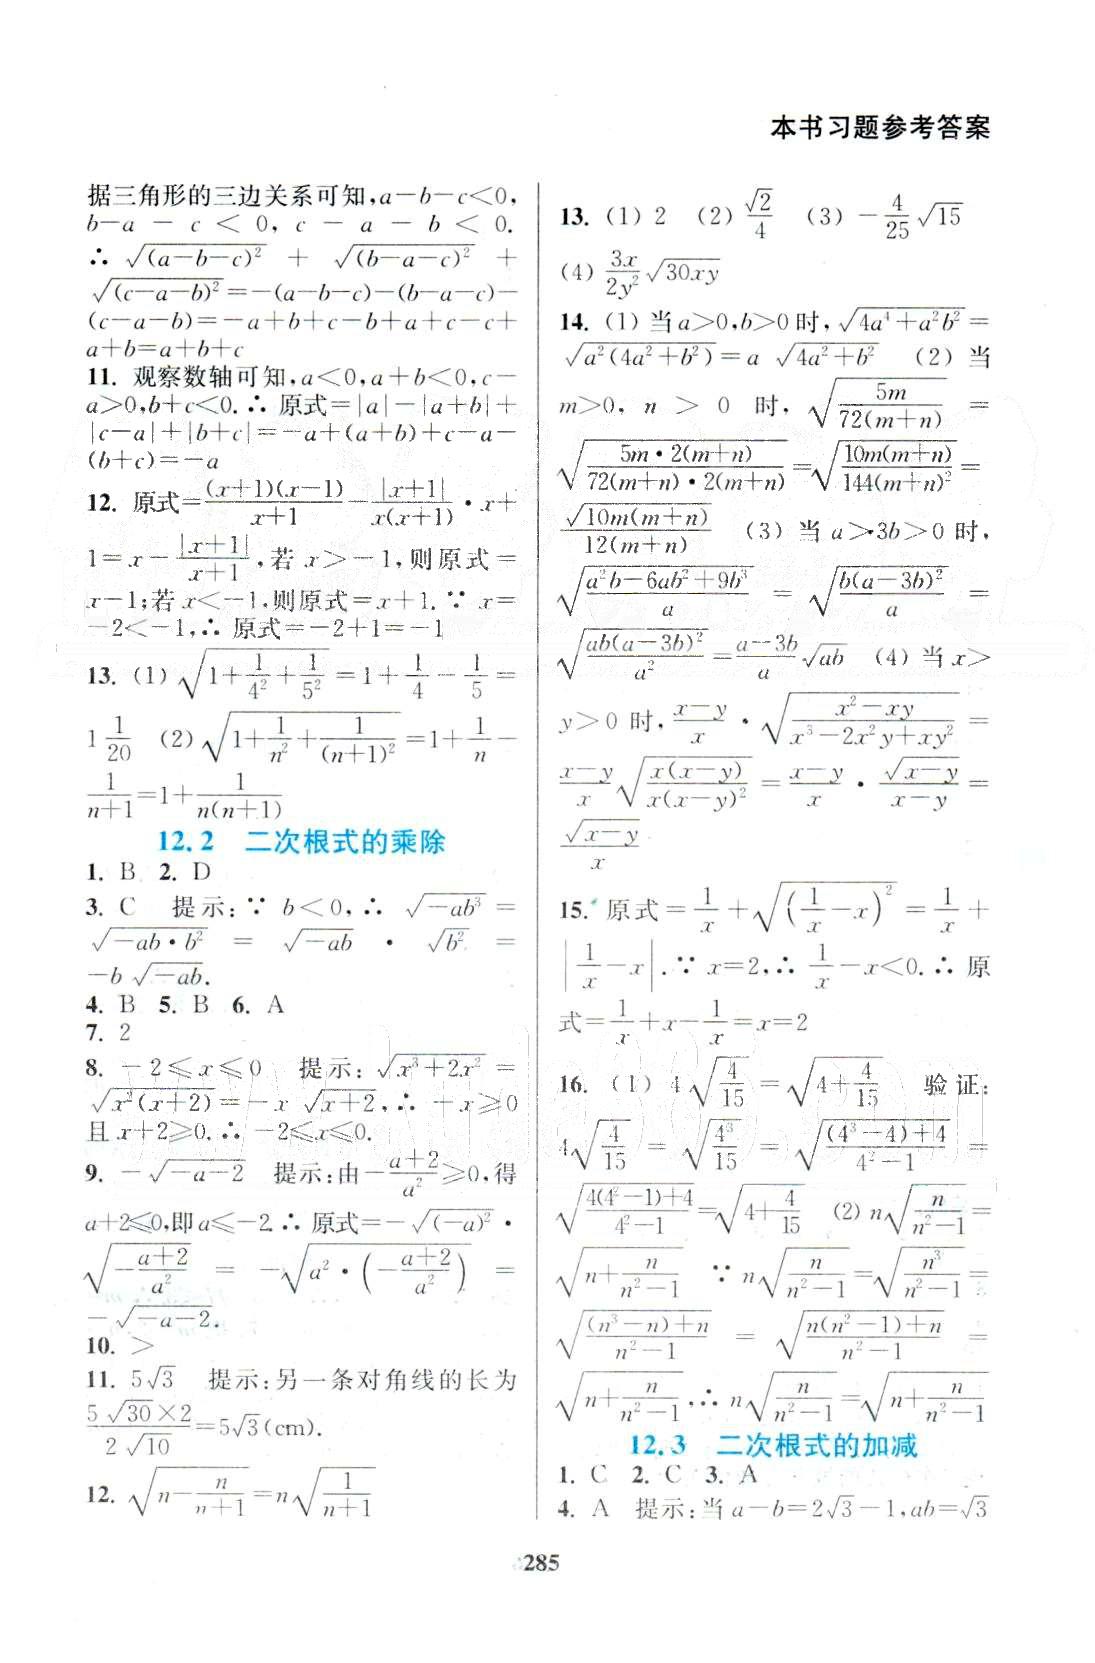 本书习题参考答案
据三角形的三边关系可知,a−b−c<0,
b−a−c<0,c−a−b<0.
∴ √((a−b−c)²) + √((b−a−c)²) +
√((c−a−b)²)=−(a−b−c)−(b−a−c)−
(c−a−b)=−a+b+c−b+a+c−c+
a+b=a+b+c
11. 观察数轴可知,a<0,a+b<0,c−
a>0,b+c<0.∴ 原式=|a|−|a+b|+
|c−a|+|b+c|=−a+(a+b)+c−a−
(b+c)=−a
12. 原式=(x+1)(x−1)/(x+1)−|x+1|/(x(x+1))·x+
1=x−|x+1|/(x+1),若 x>−1,则原式=
x−1;若 x<−1,则原式=x+1.∵ x=
−2<−1,∴ 原式=−2+1=−1
13. (1) √(1+1/4²+1/5²)=1+1/4−1/5=
1 1/20 (2) √(1+1/n²+1/(n+1)²)=1+1/n−
1/(n+1)=1+1/(n(n+1))
12.2 二次根式的乘除
1. B 2. D
3. C 提示:∵ b<0,∴ √(−ab³)=
√(−ab·b²) = √(−ab) · √(b²) =
−b√(−ab).
4. B 5. B 6. A
7. 2
8. −2≤x≤0 提示:√(x³+2x²)=
√(x²(x+2))=−x√(x+2),∴ −x≥0
且 x+2≥0.∴ −2≤x≤0.
9. −√(−a−2) 提示:由−(a+2)/a²≥0,得
a+2≤0,即 a≤−2.∴ 原式=−√((−a)²)·
√(−(a+2)/a²) = −√(a²·(−(a+2)/a²)) =
−√(−a−2).
10. >
11. 5√3 提示:另一条对角线的长为
(5√30×2)/(2√10)=5√3(cm).
12. √(n−n/(n+1))=n√(1/(n+1))
13. (1) 2 (2) √2/4 (3) −4/25√15
(4) 3x/(2y²)√(30xy)
14. (1) 当 a>0,b>0 时,√(4a⁴+a²b²)=
√(a²(4a²+b²))=a√(4a²+b²) (2) 当
m>0,n>0 时,√(5m/(72(m+n))) =
√(5m·2(m+n)/(72(m+n)·2(m+n)))=√(10m(m+n)/(144(m+n)²))=
√(10m(m+n))/(12(m+n)) (3) 当 a>3b>0 时,
√((a²b−6ab²+9b³)/a) = √(b(a−3b)²/a) =
√(ab(a−3b)²/a²)=(a−3b)/a√(ab) (4) 当 x>
y>0 时,(x−y)/x·√((x²−xy)/(x³−2x²y+xy²))=
(x−y)/x√(x(x−y)/(x(x−y)²))=(x−y)/x·√(x−y)/(x−y)=
√(x−y)/x
15. 原式=1/x+√((1/x−x)²)=1/x+
|1/x−x|.∵ x=2,∴ 1/x−x<0.∴ 原
式=1/x+x−1/x=x=2
16. (1) 4√(4/15)=√(4+4/15) 验证:
4√(4/15) = √(4³/15) = √(((4³−4)+4)/(4²−1)) =
√((4(4²−1)+4)/(4²−1))=√(4+4/15) (2) n√(n/(n²−1))=
√(n+n/(n²−1)) ∵ n√(n/(n²−1))=√(n³/(n²−1))=
√(((n³−n)+n)/(n²−1)) = √((n(n²−1)+n)/(n²−1)) =
√(n+n/(n²−1)),∴ n√(n/(n²−1))=√(n+n/(n²−1))
12.3 二次根式的加减
1. C 2. C 3. A
4. A 提示:当 a−b=2√3−1,ab=√3
285